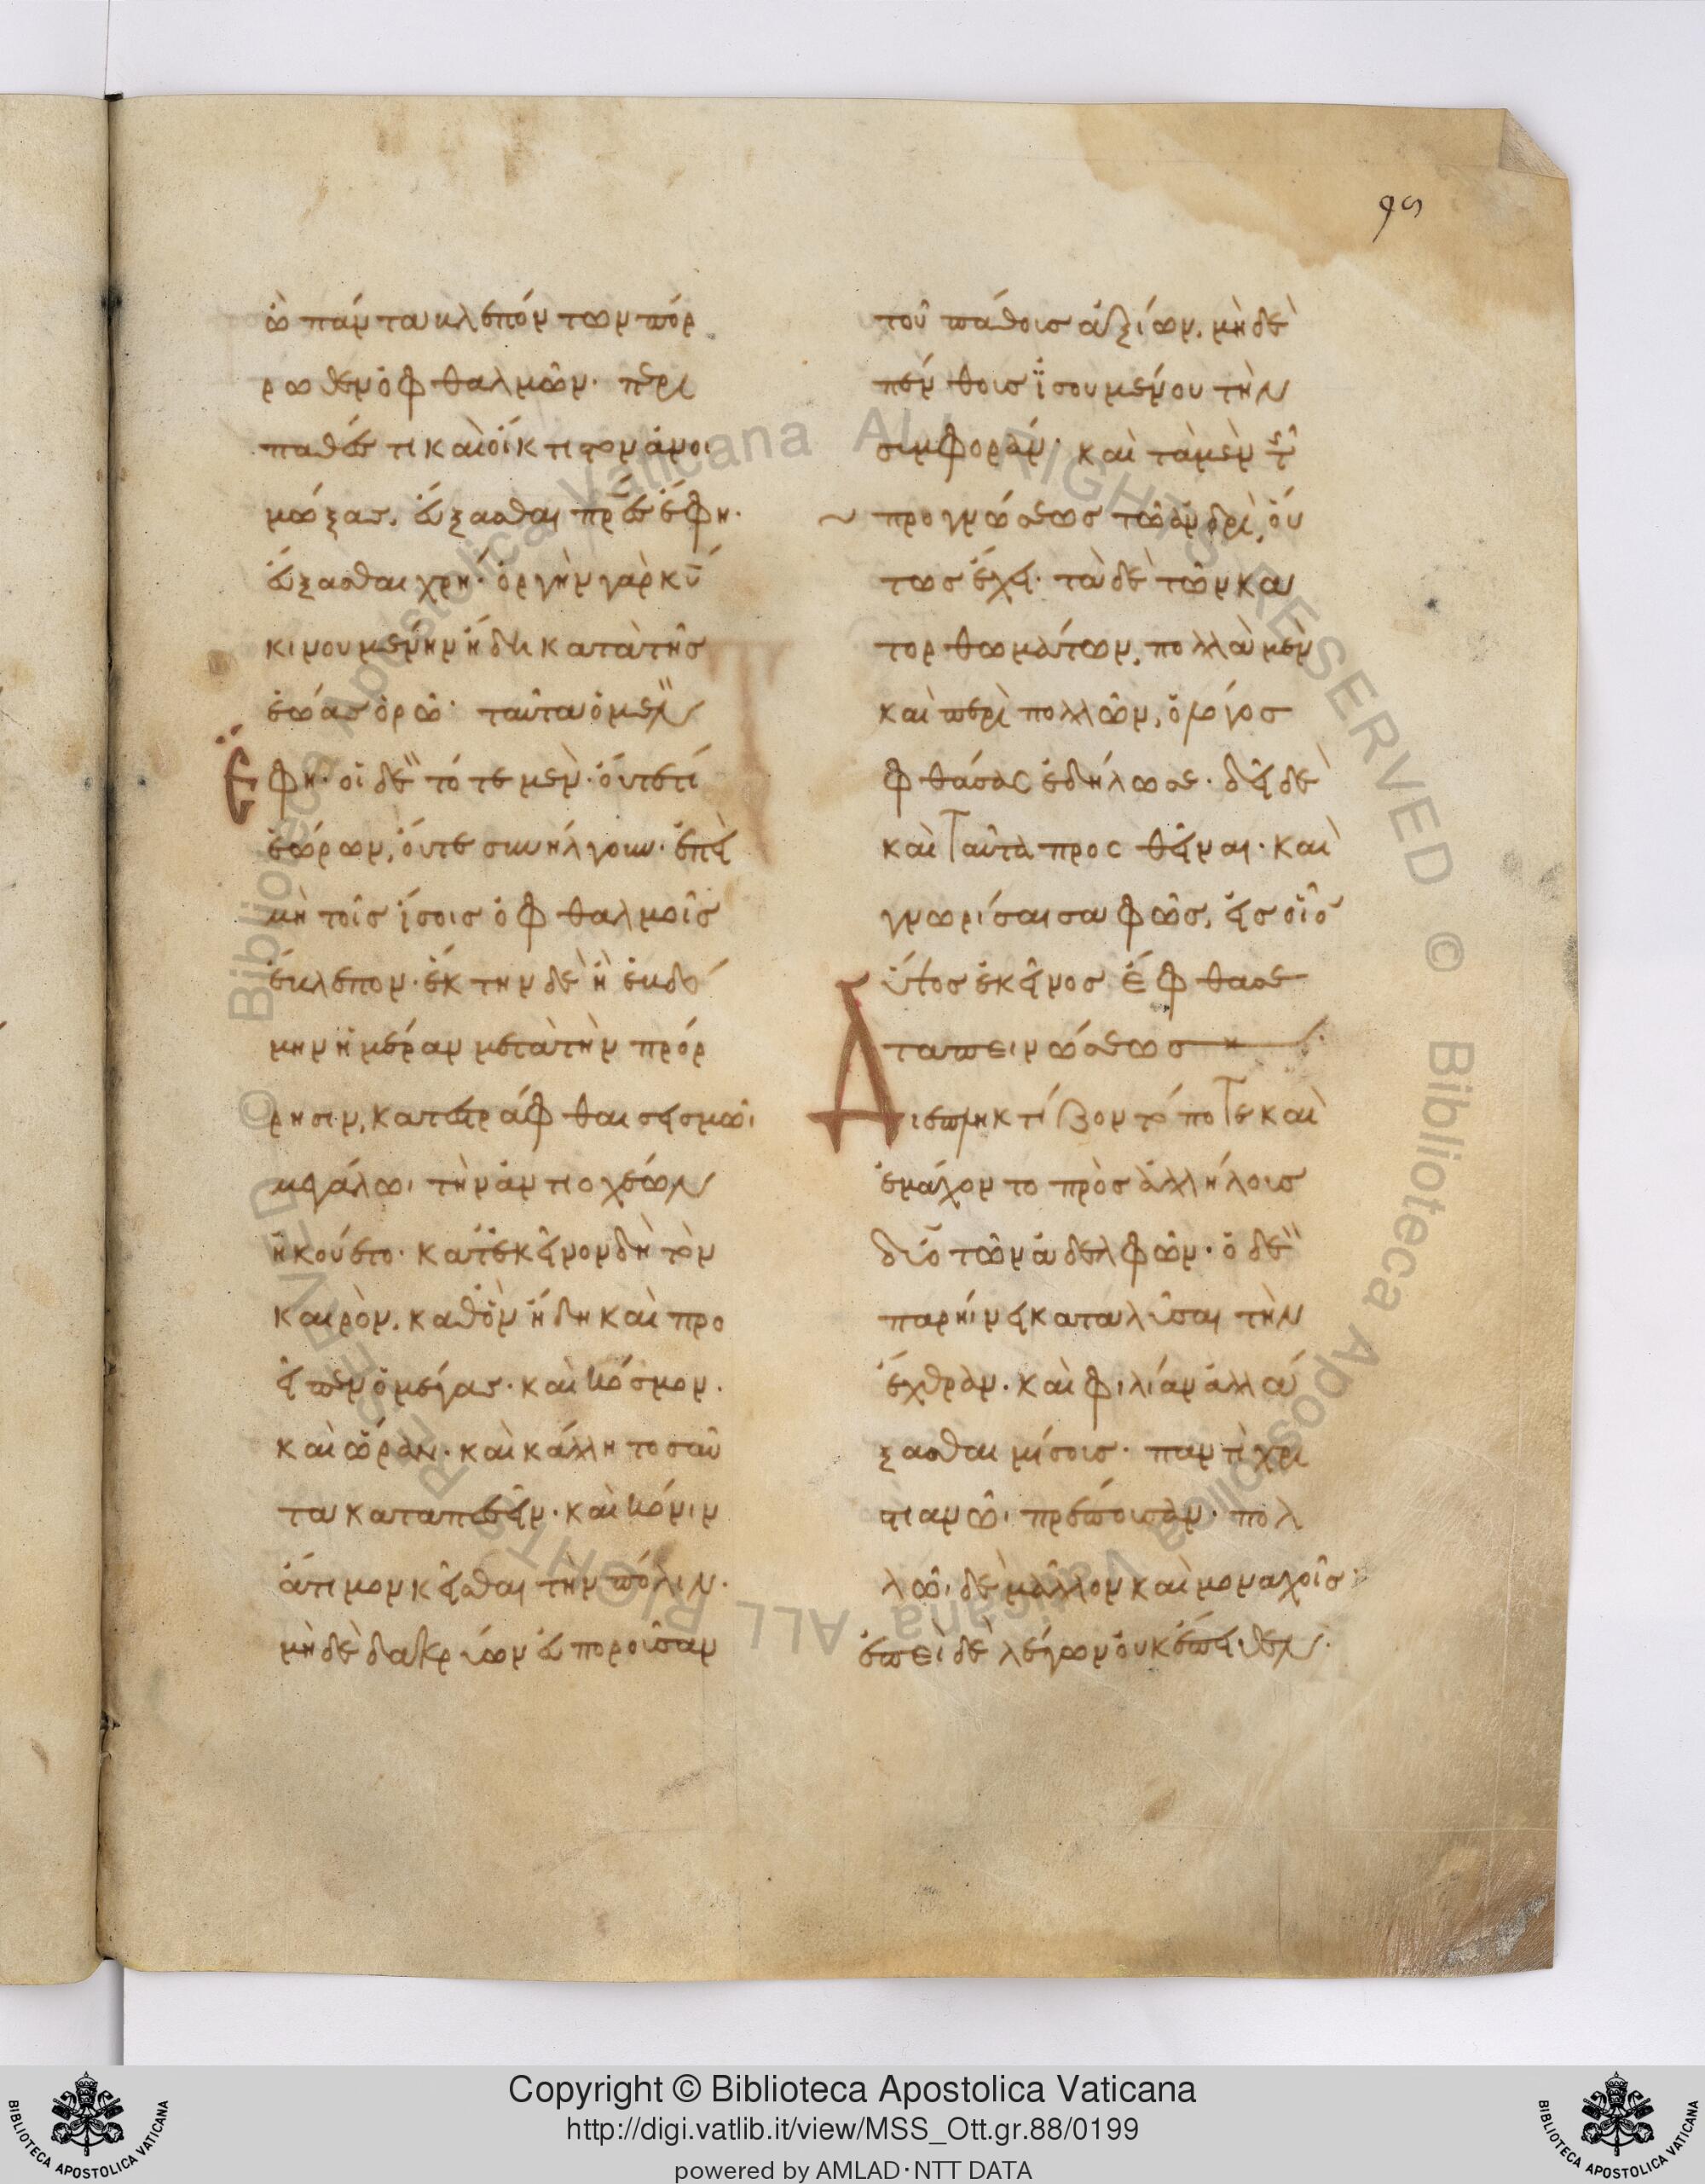 95
ὁ πάντα βλέπων τῶν πόρ
ρωθεν ὀφθαλμῶν· περι
παθές τι καὶ οἴκτιστον ἀνοι
μώξας, εὔξασθαι πρῶτ ἔφη·
εὔξασθαι χρή· ὀργὴν γὰρ
κινουμένην ἤδη κατὰ τῆς
ἑώας ὁρῶ· ταῦτα ὁ μὲν
ἔφη· οἱ δὲ τότε μὲν οὔτε τι
ἑώρων, οὔτε συνήλγουν· ἐπεὶ
μὴ τοῖς ἴσοις ὀφθαλμοῖς
ἔβλεπον· ἕκτην δὲ ἢ ἑβδό
μην ἡμέραν μετὰ τὴν πρόρ
ρησιν, κατεστράφθαι σεισμῶι
μεγάλωι τὴν ἀντιοχέων
ἠκούετο· κατ' ἐκεῖνον δὴ τὸν
καιρὸν, καθ' ὃν ἤδη καὶ προ
εῖπεν ὁ μέγας· καὶ κόσμον·
καὶ ὥραν· καὶ κάλλη τοσαῦ
τα καταπεσεῖν· καὶ κόνιν
ἄτιμον κεῖσθαι τὴν πόλιν·
μὴ δὲ δακρύων εὐποροῦσαν
τοῦ πάθους ἀξίων, μὴ δὲ
πένθους ἰσουμένου τὴν
συμφοράν· καὶ τὰ μὲν τῆς
προγνώσεως τῶ ἀνδρὶ, οὕ
τως ἔχει· τὰ δὲ τῶν κα
τορθωμάτων, πολλὰ μὲν
καὶ περὶ πολλῶν, ὁ λόγος
φθάσας ἐδήλωσε· δεῖ δὲ
καὶ ταῦτα προσθεῖναι· καὶ
γνωρίσαι σαφῶς, εἰς οἷον
ὕψος ἐκεῖνος ἔφθασε
ταπεινώσεως
Διεπληκτίζοντό ποτε καὶ
ἐμάχοντο πρὸς ἀλλήλους
δύο τῶν ἀδελφῶν· ὁ δὲ
παρήινει καταλῦσαι τὴν
ἔχθραν· καὶ φιλίαν ἀλλά
ξασθαι μίσους· παντὶ χρι
στιανῶι πρέπουσαν· πολ
λῶι δὲ μᾶλλον καὶ μοναχοῖς
ἐπεὶ δὲ λέγων οὐκ ἔπειθεν·
Copyright © Biblioteca Apostolica Vaticana
http://digi.vatlib.it/view/MSS_Ott.gr.88/0199
powered by AMLAD·NTT DATA
BIBLIOTECA APOSTOLICA VATICANA
BIBLIOTECA APOSTOLICA VATICANA
© Biblioteca Apostolica Vaticana ALL RIGHTS RESERVED © Biblioteca Apostolica Vaticana ALL RIGHTS RESERVED